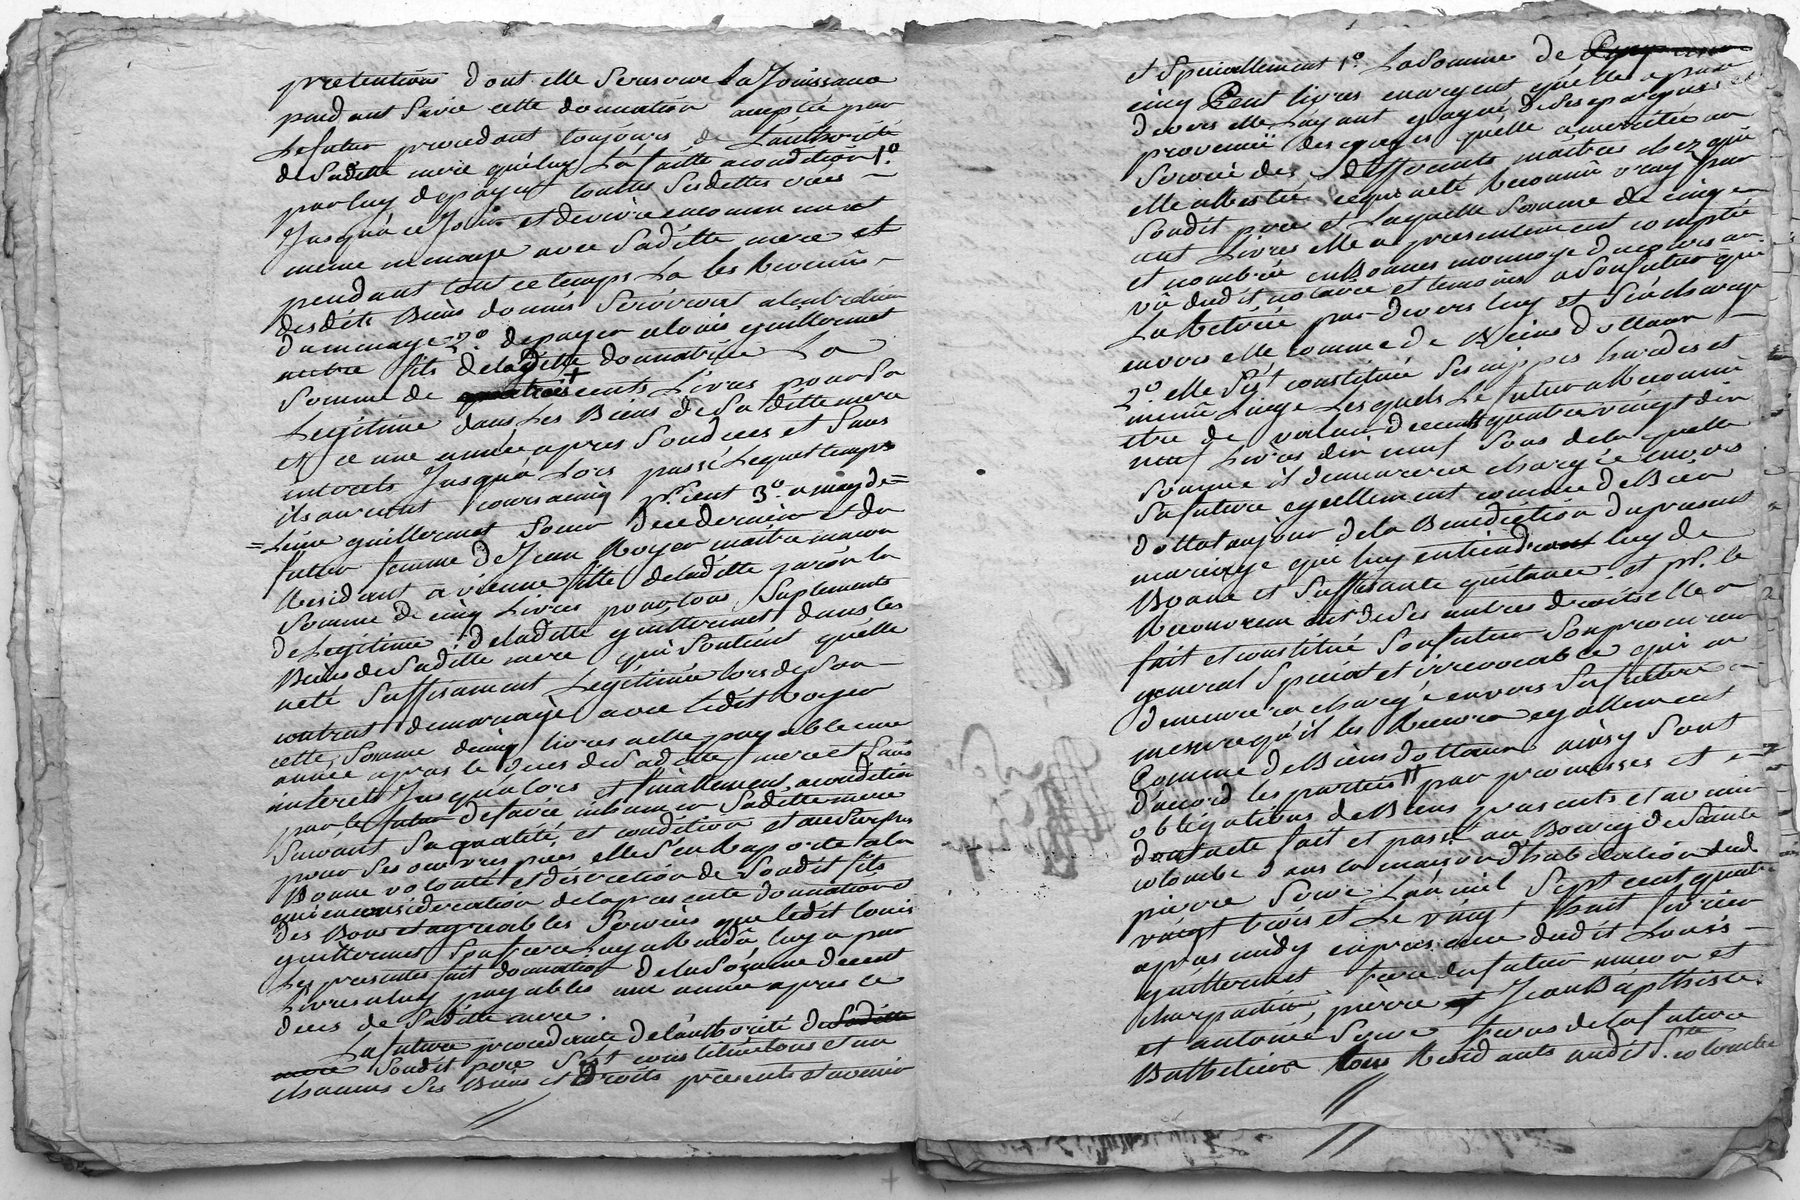 pretentions dont elle Se reserve la Jouissance
pendant Sa vie cette donnation acceptée par
Le futur procedant toujours de L'authorité
de Sadte mere qui luy La faitte a condition 1.°
par luy de payer touttes Ses dettes crées
Jusqu'a ce Jour et de vivre en commun
meme menage avec Sa ditte mere et
pendant tout ce temps La les Revenus
des dits Biens donnés Serviront a l'entretien
du menage 2.° de payer a louis guillermet
autre fils de la ditte donnatrice La
Somme de cents Livres pour Sa
Legitime dans Les Biens de Sa ditte mere
et ce une année apres Son deces et Sans
interets Jusqu'a Lors passé Lequel temps
ils auront cours 3.° a magde=
=Leine guillermet Soeur de ce dernier et du
futur femme de Jean Royer maitre macon
Residant a vienne fille de la ditte La
Somme de cinq Livres pour tous Suplements
de Legitime de la ditte guillermet dans les
Biens de Sa ditte mere qui Soutient qu'elle
a eté Suffisament Legitimée lors de Son
contrat de mariage avec Ledit Royer
cette Somme de cinq livres a elle payable une
année apres le deces de Sa ditte mere et Sans
interets Jusqu'alors et finallement a condition
par le futur de faire inhumer Sa ditte mere
Suivant Sa qualité et condition et au Surplus
pour Ses oeuvres pies elle S'en Raporte a la
Bonne volonté et discretion de Son dit fils
qui en consideration de la presente donnation et
des Bons et agreables Services que ledit louis
guillermet Son frere luy a Rendû luy a par
Les presentes fait donnation de la Somme de cent
Livres a luy payables une année apres le
deces de Sa ditte mere.
La future procedante de l'authorité de Sa ditte
mere Son dit pere S'est constituée tous et un
chacuns Ses Biens et Droits presents et avenir
et Speciallement 1.° La Somme de
cinq Cent livres en argent qu'elle a par
devers elle L'ayant gagné de Ses epargnes et
provenüe des gages qu'elle a merités au
Service des differents maitres chez qui
elle a Restée ce qui a eté Reconnu vray par
Son dit pere et Laquelle Somme de cinq
cent Livres elle a presentement comptée
et nombrée en Bonnes monnoye de cours au
vû dudit notaire et temoins a Son futur qui
La Retirée par devers luy et S'en charge
envers elle comme de Biens dottaux
2.° elle S'est constituée Ses nippes hardes et
menu Linge Les quels Le futur a Reconnu
etre de valeur de cent quatre vingt dix
neuf Livres dix neuf Sous de la quelle
Somme il demeurera chargé envers
Sa future egallement comme de Bien
dottal au jour de la Benediction du present
mariage qui luy en tiendra luy de
Bonne et Suffisante quitance. et pr. le
Recouvrement de Ses autres droits elle a
fait et constitué Son futur Son procureur
general Special et irrevocable qui en
demeurera chargé envers Sa future a
mesure qu'il les Recevra egallement
Comme de Biens dottaux ainsy Sont
d'accord les parties par promesses et
obligations de Biens presents et avenir
dont acte fait et passé au Bourg de Sainte
colombe dans la maison d'habitation dud
pierre Serve L'an mil Sept cent quatre
vingt trois et Le vingt huit fevrier
apres midy en presence dudit Louis
guillermet frere du futur macon et
charpentier, pierre et Jean Baptiste
et antoine Serve freres de la future
Battelier tous Residants audit Ste colombe